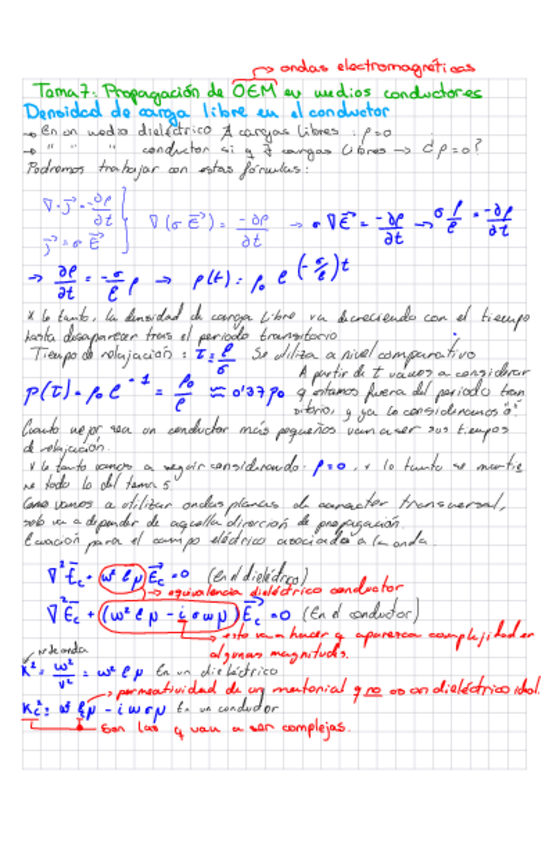 ondas electromagnéticas
Tema 7: Propagación de OEM en medios conductores
Densidad de carga libre en el conductor
→ En un medio dieléctrico ∄ cargas libres : ρ=0
→ " " " conductor si q ∃ cargas libres → ¿ρ=0?
Podremos trabajar con estas fórmulas:
∇·J⃗ = -∂ρ/∂t
J⃗ = σ E⃗
∇(σ E⃗) = -∂ρ/∂t → σ ∇E⃗ = -∂ρ/∂t → σ ρ/ε = -∂ρ/∂t
→ ∂ρ/∂t = -σ/ε ρ → ρ(t) = ρ₀ e^(-σ/ε)t
x lo tanto, la densidad de carga libre va decreciendo con el tiempo
hasta desaparecer tras el periodo transitorio
Tiempo de relajación : τ = ε/σ Se utiliza a nivel comparativo
ρ(τ) = ρ₀ e^-1 = ρ₀/e ≈ 0'37 ρ₀
A partir de τ vamos a considerar
q estamos fuera del periodo tran
sitorio, y ya lo consideramos "0".
Cuanto mejor sea un conductor más pequeños van a ser sus tiempos
de relajación.
x lo tanto vamos a seguir considerando ρ=0, x lo tanto se mantie
ne todo lo del tema 5
Como vamos a utilizar ondas planas de caracter transversal,
solo va a depender de aquella dirección de propagación.
Ecuación para el campo eléctrico asociado a la onda.
∇²E⃗c + ω² ε μ E⃗c = 0 (En el dieléctrico)
→ equivalencia dieléctrico conductor
∇²E⃗c + (ω² ε μ - i σ ω μ) E⃗c = 0 (En el conductor)
→ esto va a hacer q aparezca complejidad en
algunas magnitudes.
nº de onda
K² = ω²/v² = ω² ε μ En un dieléctrico
→ permeatividad de un material q no es un dieléctrico idol.
Kc² = ω² ε μ - i ω σ μ En un conductor
Son las q van a ser complejas.